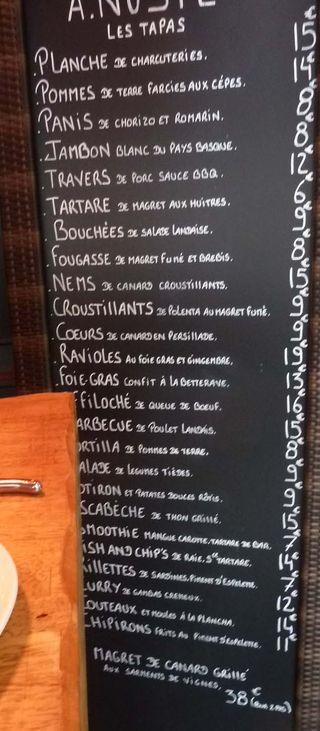 LES TAPAS
PLANCHE DE CHARCUTERIES. 15€
POMMES DE TERRE FARCIES AUX CÈPES. 14€
PANIS DE CHORIZO ET ROMARIN. 8€
JAMBON BLANC DU PAYS BASQUE. 8€
TRAVERS DE PORC SAUCE BBQ. 12€
TARTARE DE MAGRET AUX HUITRES. 6€
BOUCHÉES DE SALADE LANDAISE. 9€
FOUGASSE DE MAGRET FUMÉ ET BREBIS. 8€
NEMS DE CANARD CROUSTILLANTS. 15€
CROUSTILLANTS DE POLENTA AU MAGRET FUMÉ. 9€
COEURS DE CANARD EN PERSILLADE. 9€
RAVIOLES AU FOIE GRAS ET GINGEMBRE. 19€
FOIE GRAS CONFIT À LA BETTERAVE. 13€
FFILOCHÉ DE QUEUE DE BOEUF. 16€
ARBECUE DE POULET LANDAIS. 15€
ORTILLA DE POMMES DE TERRE. 8€
ALADE DE LEGUMES TIÈDES. 9€
OTIRON ET PATATES DOUCES RÔTIS. 9€
SCABÈCHE DE THON GRILLÉ. 15€
SMOOTHIE MANGUE CAROTTE, TARTARE DE BAR. 7€
ISH AND CHIP'S DE RAIE, SCE TARTARE. 14€
RILLETTES DE SARDINES, PIMENT D'ESPELETTE. 7€
CURRY DE GAMBAS CREMEUX. 12€
COUTEAUX ET MOULES À LA PLANCHA. 14€
CHIPIRONS FRITS AU PIMENT D'ESPELETTE. 11€
MAGRET DE CANARD GRILLÉ
AUX SARMENTS DE VIGNES. 38€